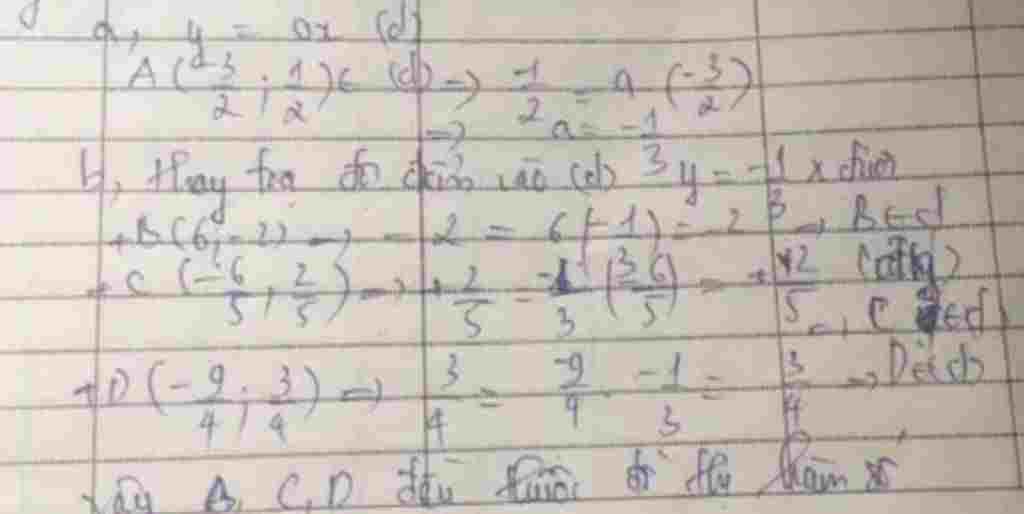 a, y = ax (d)
A(-3/2; 1/2) ∈ (d) → 1/2 = a (-3/2)
→ a = -1/3
b, thay tọa độ điểm vào (d) y = -1/3 x được
+ B(6; -2) → -2 = 6(-1/3) = -2 → B ∈ d
+ C (-6/5; 2/5) → +2/5 = -1/3 (-6/5) = +2/5 → C ∈ d
+ D(-9/4; 3/4) → 3/4 = -9/4 . -1/3 = 3/4 → D ∈ (d)
Vậy B, C, D đều thuộc đồ thị hàm số